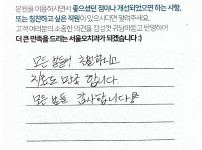 본원을 이용하시면서 좋으셨던 점이나 개선되었으면 하는 사항,
또는 칭찬하고 싶은 직원이 있으시다면 알려주세요.
고객여러분의 소중한 의견을 감성껏 귀담아듣고 반영하여
더 큰 만족을 드리는 서울오치과가 되겠습니다 :)
모든 분들이 친절하시고
치료도 만족 합니다.
모든 분들 감사합니다